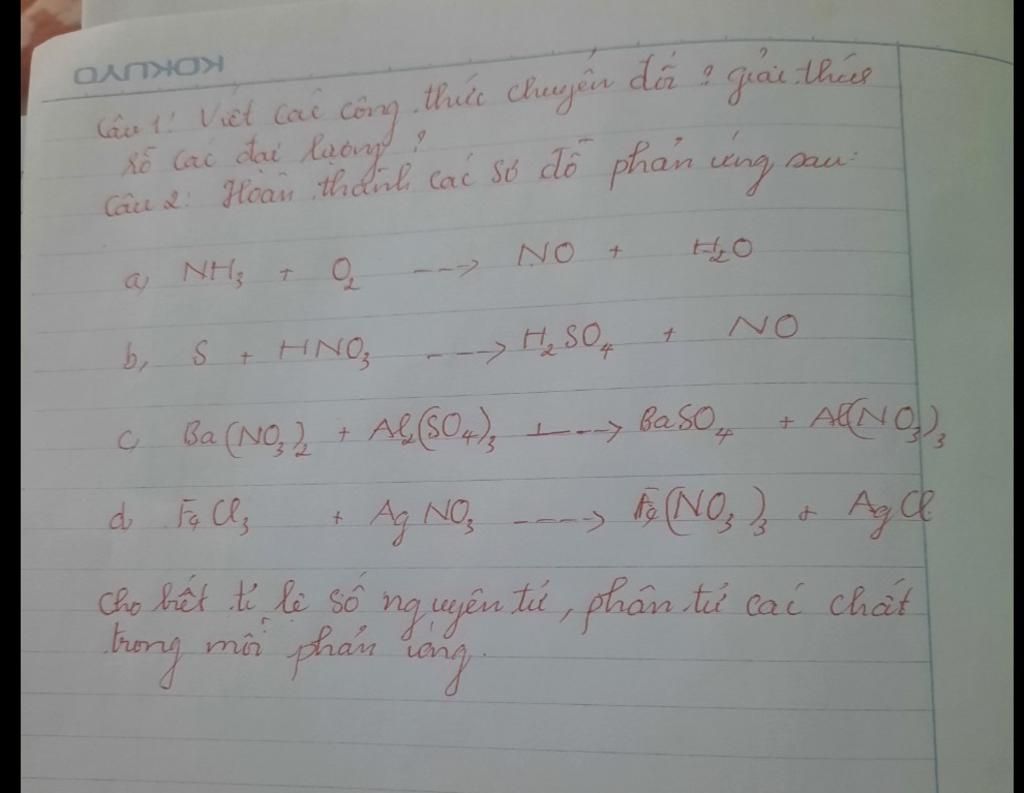 KOKUYO
Câu 1: Viết các công thức chuyển đổi? giải thích
rõ các đại lượng?
Câu 2: Hoàn thành các sơ đồ phản ứng sau:
a, NH₃ + O₂ ---> NO + H₂O
b, S + HNO₃ ---> H₂SO₄ + NO
c, Ba(NO₃)₂ + Al₂(SO₄)₃ ---> BaSO₄ + Al(NO₃)₃
d, FeCl₃ + AgNO₃ ----> Fe(NO₃)₃ + AgCl
cho biết tỉ lệ số nguyên tử, phân tử các chất
trong mỗi phản ứng.